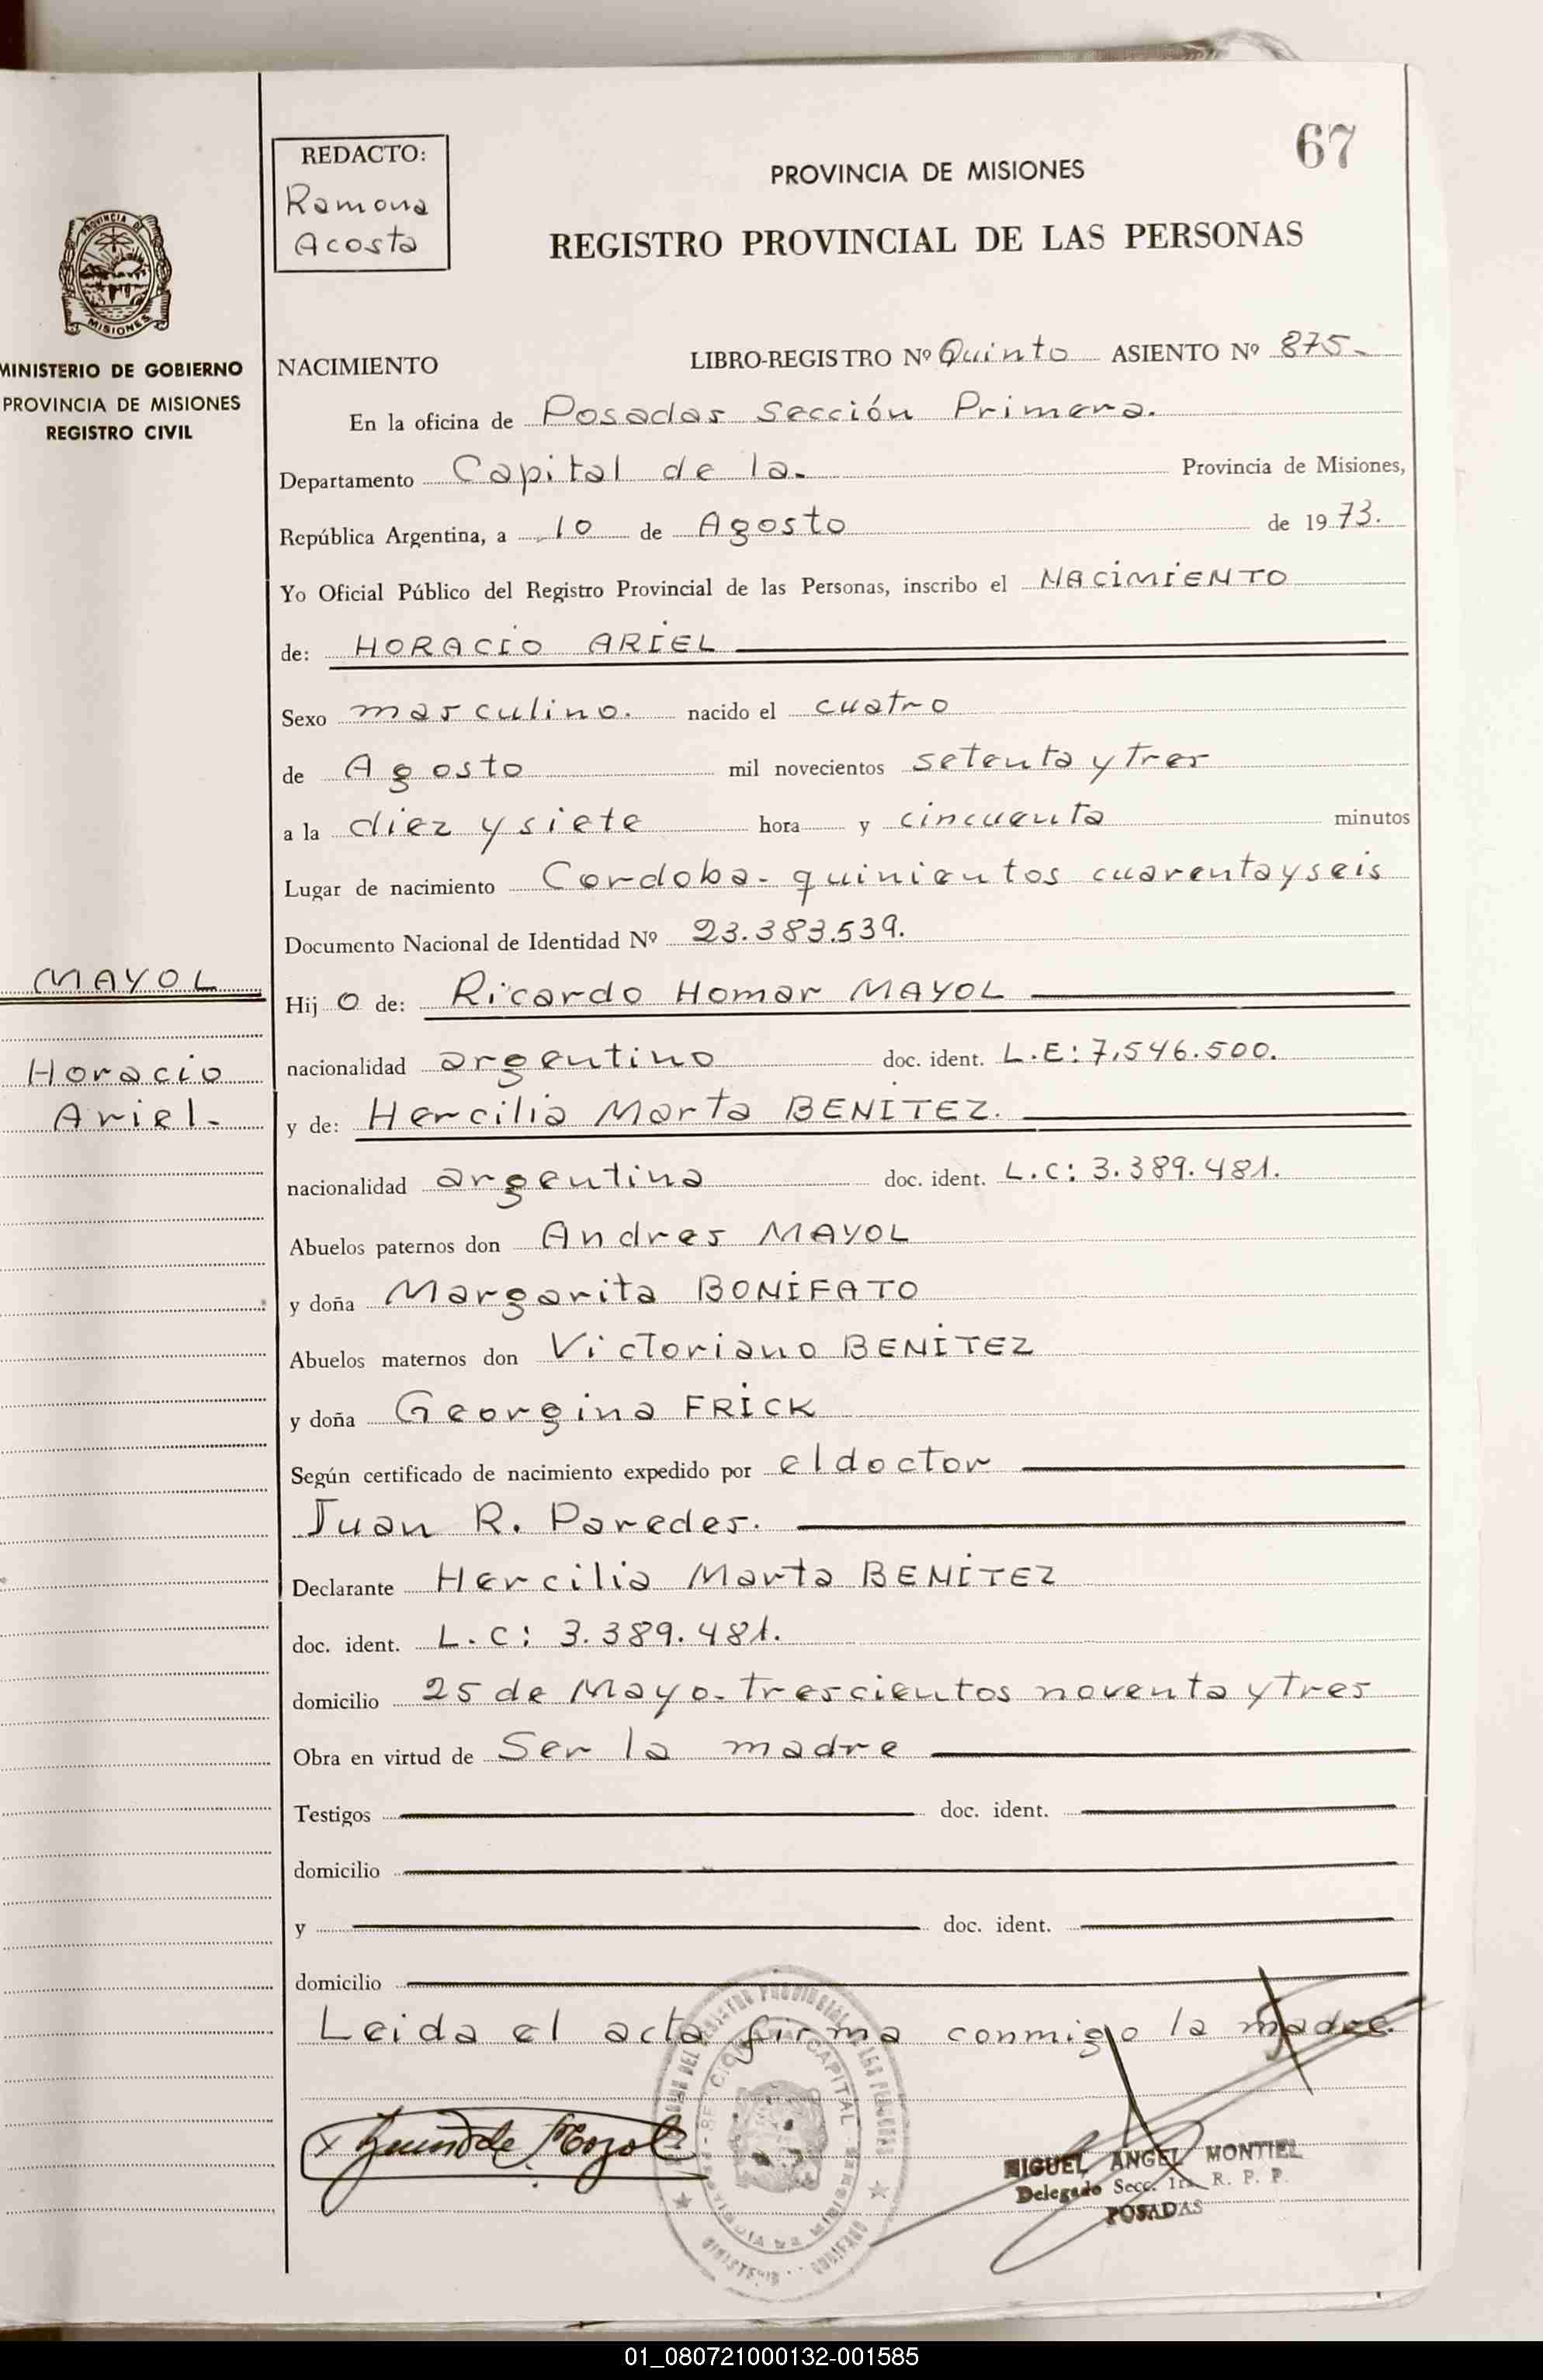 67
REDACTO:
Ramona
Acosta
PROVINCIA DE MISIONES
REGISTRO PROVINCIAL DE LAS PERSONAS
PROVINCIA DE
MISIONES
MINISTERIO DE GOBIERNO
PROVINCIA DE MISIONES
REGISTRO CIVIL
NACIMIENTO LIBRO-REGISTRO Nº Quinto ASIENTO Nº 875.
En la oficina de Posadas Sección Primera.
Departamento Capital de la. Provincia de Misiones,
República Argentina, a 10 de Agosto de 1973.
Yo Oficial Público del Registro Provincial de las Personas, inscribo el NACIMIENTO
de: HORACIO ARIEL
Sexo masculino. nacido el cuatro
de Agosto mil novecientos setenta y tres
a la diez y siete hora y cincuenta minutos
Lugar de nacimiento Cordoba- quinientos cuarenta y seis
Documento Nacional de Identidad Nº 23.383.539.
MAYOL
Hijo de: Ricardo Homar MAYOL
nacionalidad argentino doc. ident. L.E: 7.546.500.
Horacio
Ariel.
y de: Hercilia Marta BENITEZ.
nacionalidad argentina doc. ident. L.C: 3.389.481.
Abuelos paternos don Andres MAYOL
y doña Margarita BONIFATO
Abuelos maternos don Victoriano BENITEZ
y doña Georgina FRICK
Según certificado de nacimiento expedido por el doctor
Juan R. Paredes.
Declarante Hercilia Marta BENITEZ
doc. ident. L.C: 3.389.481.
domicilio 25 de Mayo- trescientos noventa y tres
Obra en virtud de Ser la madre
Testigos doc. ident.
domicilio
y doc. ident.
domicilio
Leida el acta firma conmigo la madre.
MIGUEL ANGEL MONTIEL
Delegado Secc. 1ra. R. P. P.
POSADAS
01_080721000132-001585